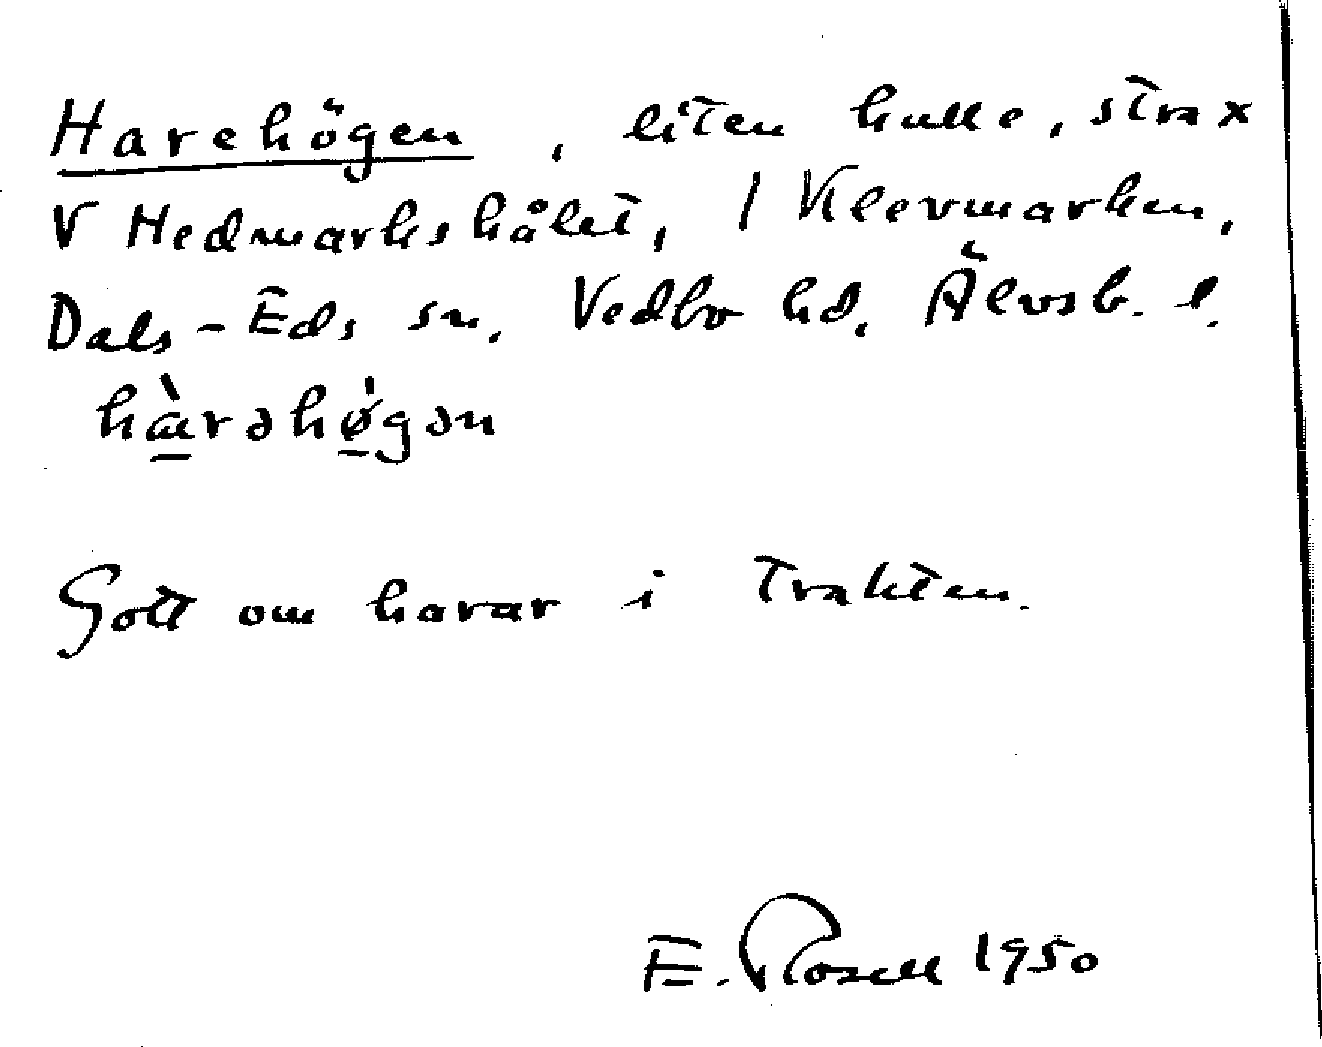 Harehögen, liten kulle, strax
V Hedmarkshålet, / Klevmarken,
Dals-Eds sn. Vedbo hd. Älvsb. l.
hàrəhø̀gən
Gott om harar i trakten.
E. Rosell 1950